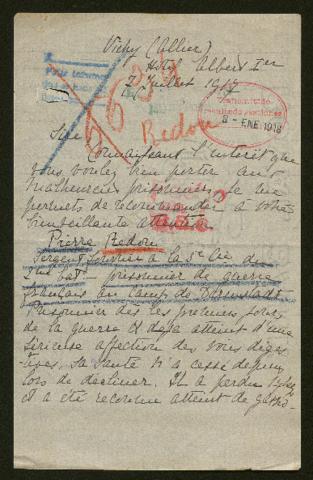 Vichy (Allier)
Hotel Albert Ier
2 Juillet 1917
5634
Redon
8 - ENE 1918
Sire
Connaissant l'interêt que
vous voulez bien porter aux
malheureux prisonniers, je me
permets de recommander à votre
bienveillante attention
Pierre Redon
Sergent fourrier à la 5e Cie du
prisonnier de guerre
français au camp de Darmstadt
Prisonnier dès les premiers jours
de la guerre et déjà atteint d'une
sérieuse affection des voies diges-
tives. Sa santé n'a cessé depuis
lors de décliner. Il a perdu
et a été reconnu atteint de gastro-